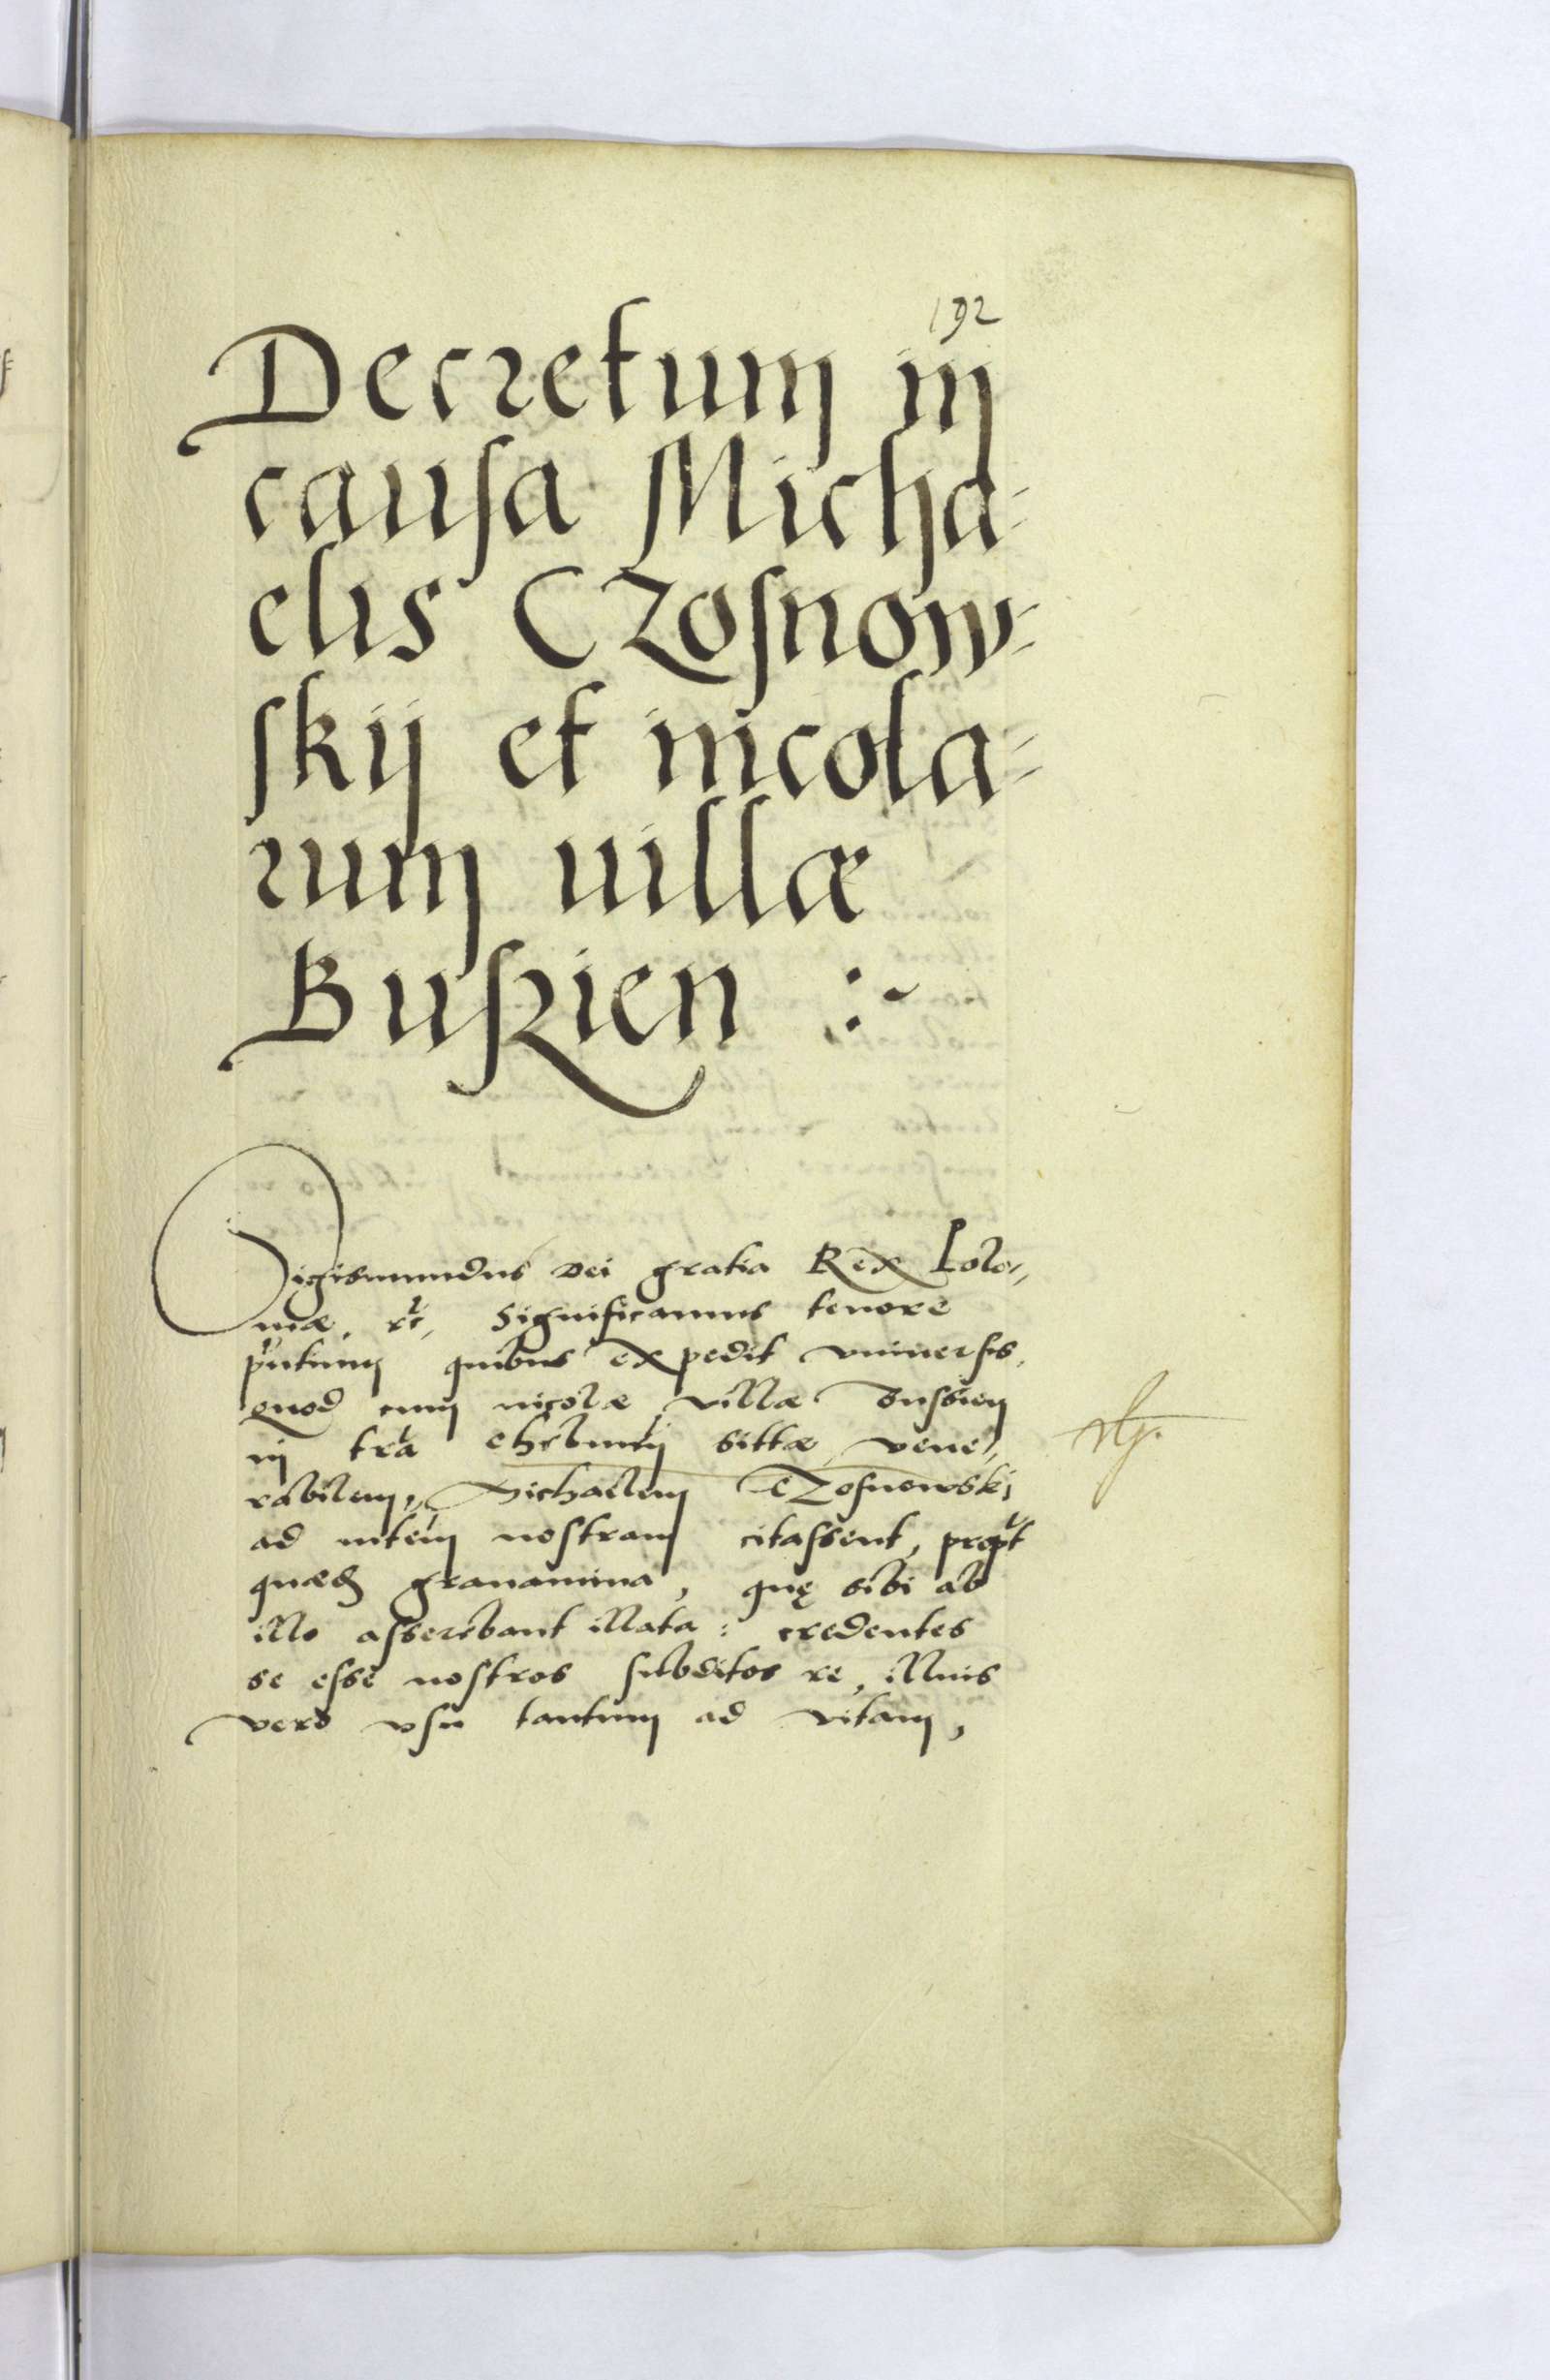 192
Decretum in
causa Micha-
elis CZosnow-
skij et incola-
rum uillæ
Buszien :~
Sigismundus Dei gratia Rex Polo-
niæ. etc, Significamus tenore
pntium quibus expedit vniuersis,
quod cum incolæ villæ Bussien
in tra Chelmen sittæ, vene-
rabilem, Michaelem CZosnowskj
ad intem nostram citassent, propt
quædam grauamina, quę sibi ab
illo asserebant illata: credentes
se esse nostros subditos re, illius
vero vsu tantum ad vitam,